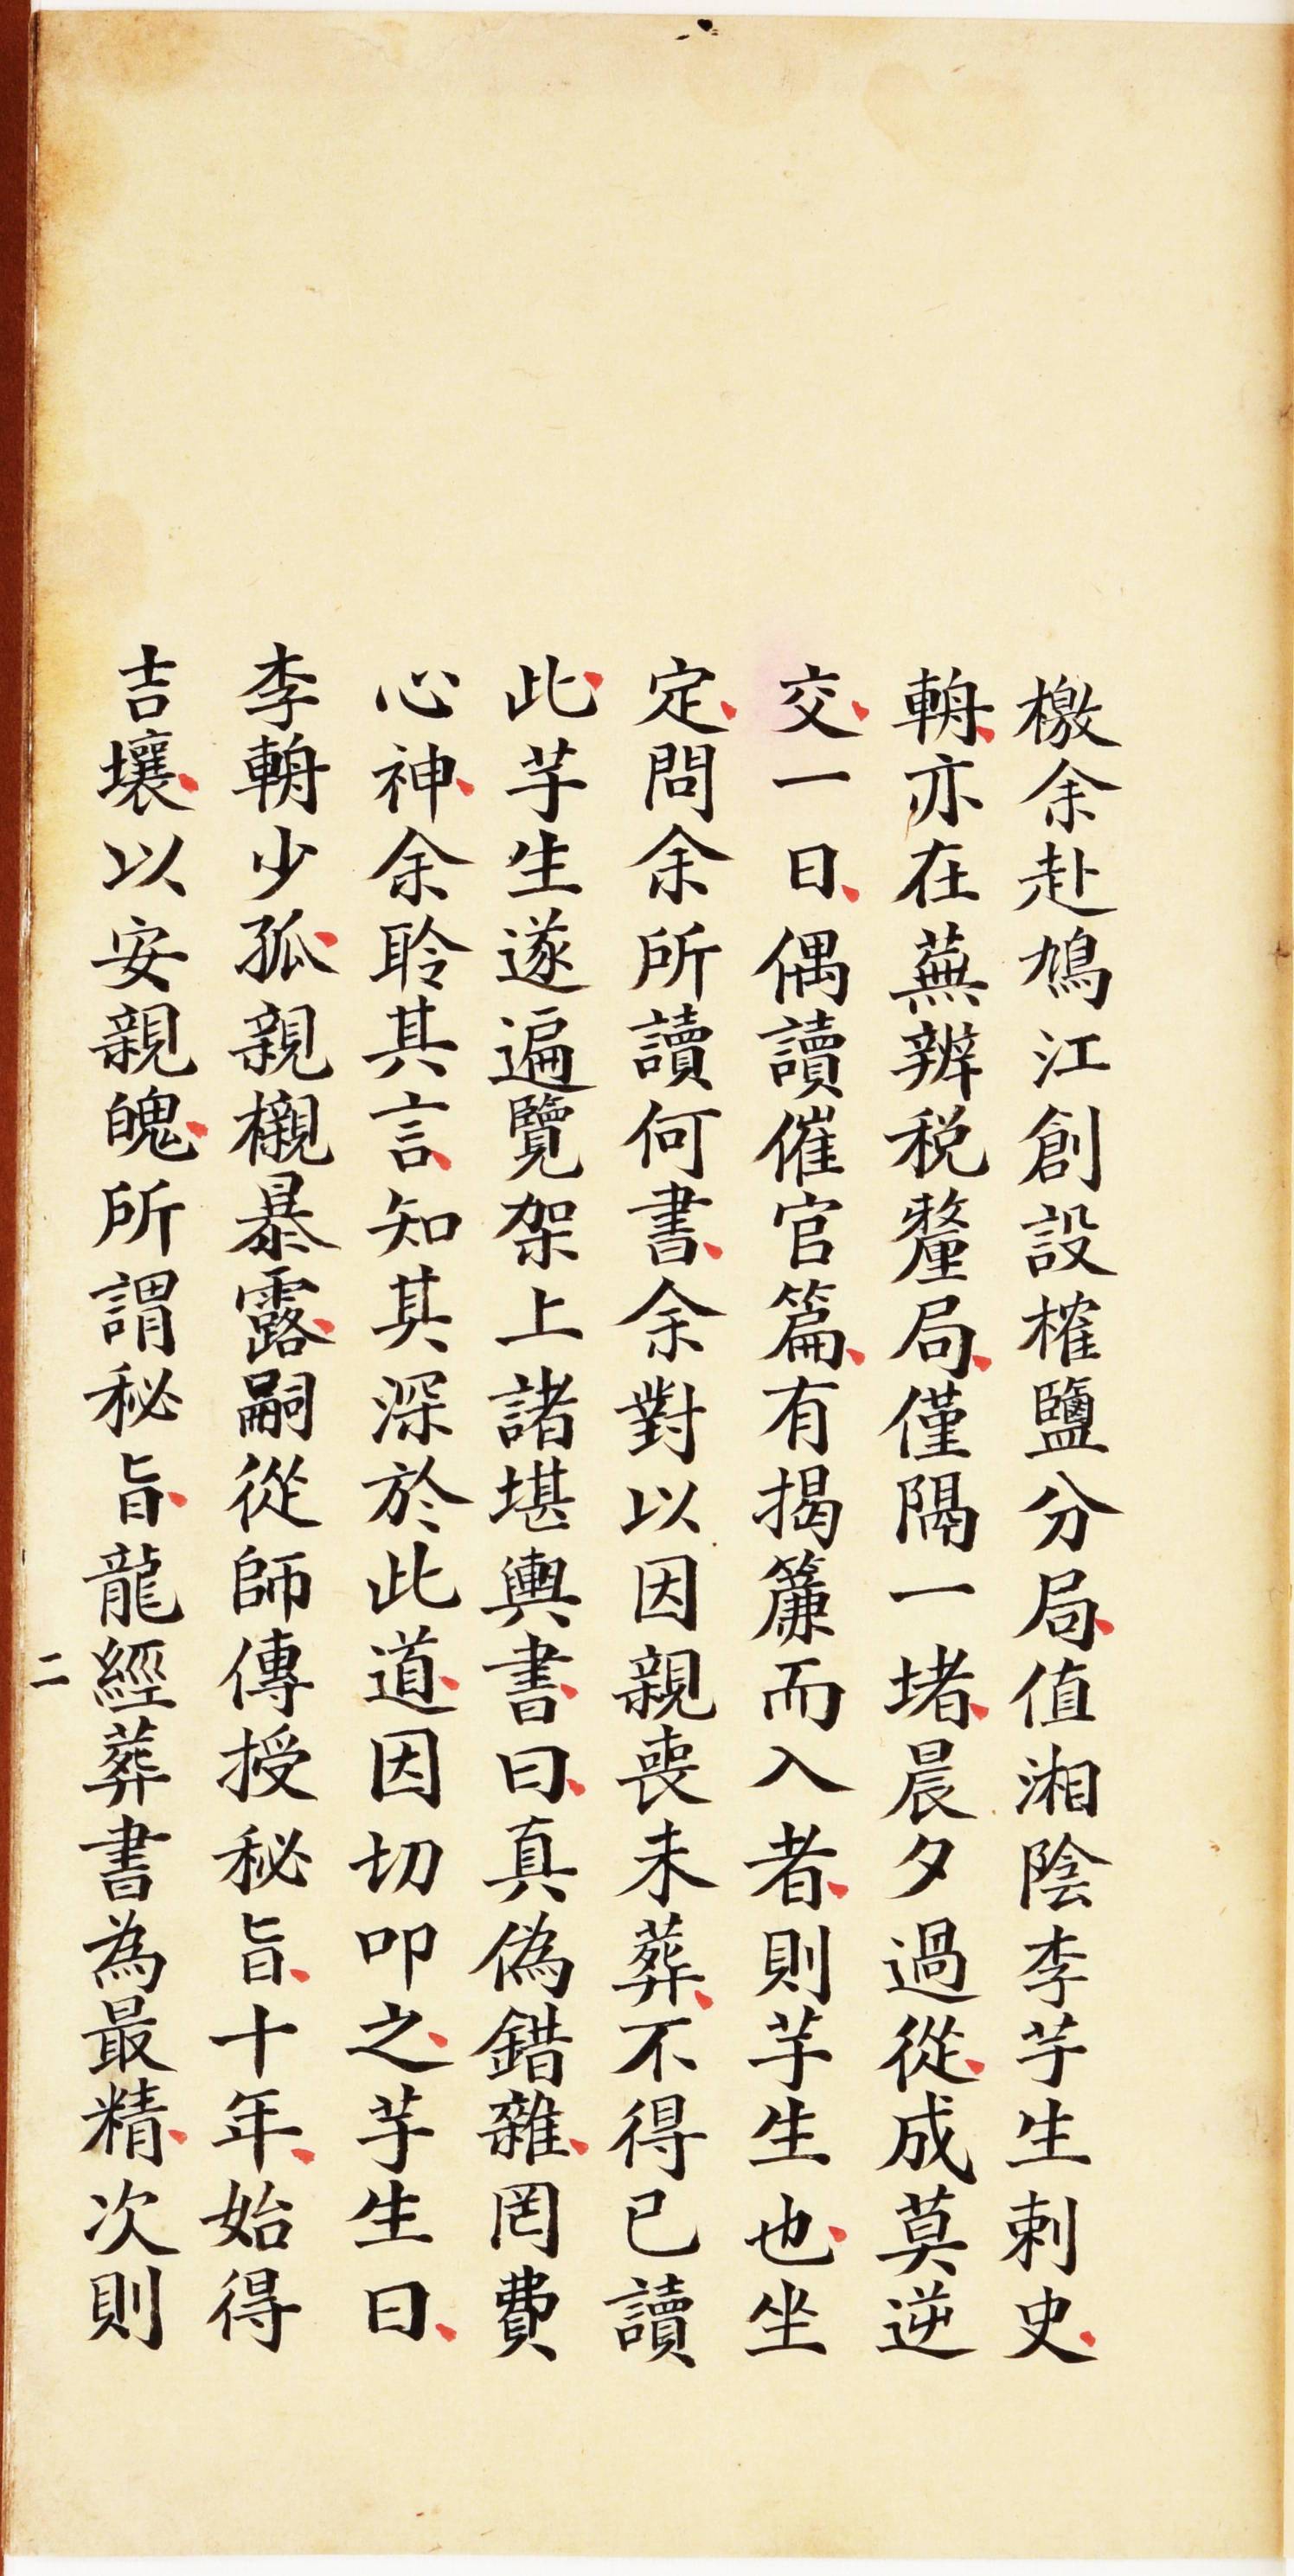 檄余赴鳩江創設榷鹽分局、值湘陰李芋生刺史、
輈、亦在蕪辦税釐局、僅隔一堵、晨夕過從、成莫逆
交、一日、偶讀催官篇、有揭簾而入者、則芋生也、坐
定、問余所讀何書、余對以因親喪未葬、不得已讀
此、芋生遂遍覽架上諸堪輿書、曰、真偽錯雜、罔費
心神、余聆其言、知其深於此道、因切叩之、芋生曰、
李輈少孤、親櫬暴露、嗣從師傳授秘旨、十年、始得
吉壤、以安親魄、所謂秘旨、龍經葬書為最精、次則
二